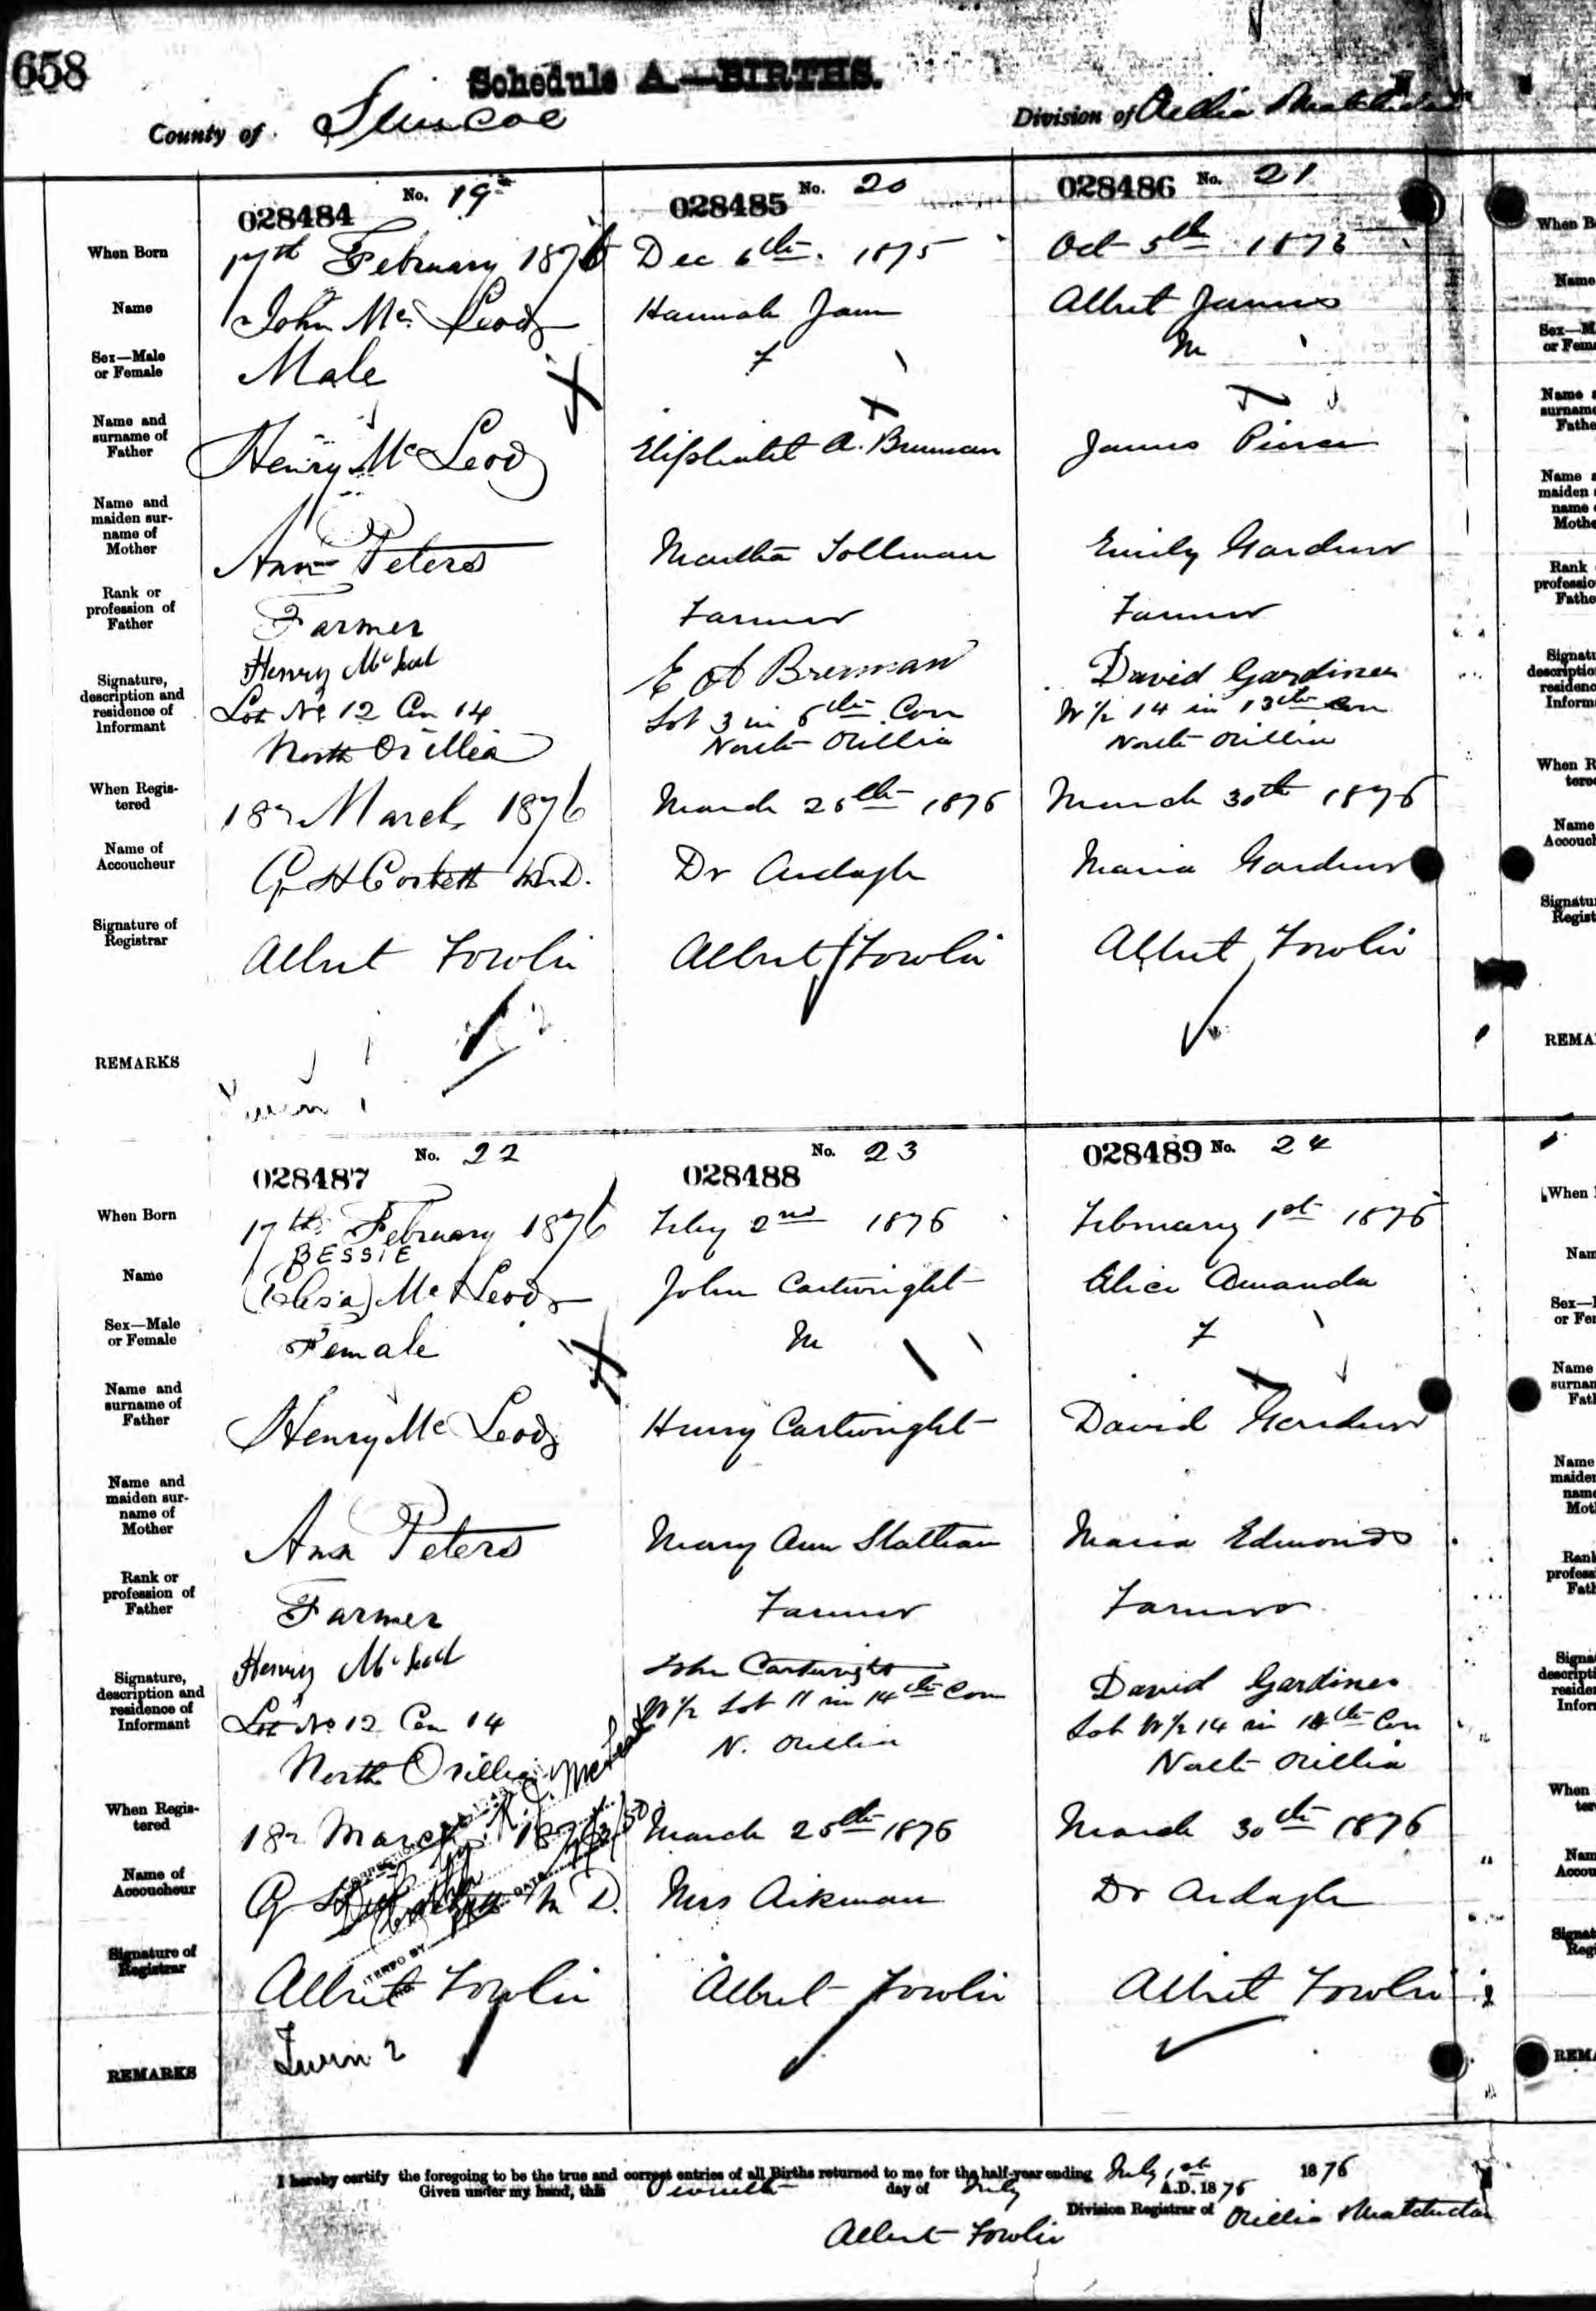 658
Schedule A.—BIRTHS.
County of Simcoe
Division of Orillia & Matchedash
No. 19
028484
When Born 17th February 1876
Name John Mc Leod
Sex—Male or Female Male
Name and surname of Father Henry Mc Leod
Name and maiden surname of Mother Ann Peters
Rank or profession of Father Farmer
Signature, description and residence of Informant Henry McLeod
Lot No 12 Con 14
North Orillia
When Registered 18 March 1876
Name of Accoucheur G H Corbett M.D.
Signature of Registrar Albert Fowlie
REMARKS Twin 1
No. 20
028485
Dec 6th. 1875
Hannah Jane
F
Eliphalet A. Brennan
Martha Tollman
Farmer
E A Brennan
Lot 3 in 6th Con
North Orillia
March 25th 1876
Dr Ardagh
Albert Fowlie
No. 21
028486
Oct 5th 1876
Albert James
M
James Pierce
Emily Gardner
Farmer
David Gardiner
W 1/2 14 in 13th Con
North Orillia
March 30th 1876
Maria Gardner
Albert Fowlie
No. 22
028487
When Born 17th February 1876
BESSIE
Name (Elisa) Mc Leod
Sex—Male or Female Female
Name and surname of Father Henry Mc Leod
Name and maiden surname of Mother Ann Peters
Rank or profession of Father Farmer
Signature, description and residence of Informant Henry McLeod
Lot No 12 Con 14
North Orillia
When Registered 18 March 1876
Name of Accoucheur G M D.
Signature of Registrar Albert Fowlie
REMARKS Twin 2
No. 23
028488
Feby 2nd 1876
John Cartwright
M
Henry Cartwright
Mary Ann Slattean
Farmer
John Cartwright
W 1/2 Lot 11 in 14th Con
N. Orillia
March 25th 1876
Mrs Aikman
Albert Fowlie
No. 24
028489
February 1st 1876
Alice Amanda
F
David Gardner
Maria Edmonds
Farmer
David Gardiner
Lot W 1/2 14 in 14th Con
North Orillia
March 30th 1876
Dr Ardagh
Albert Fowlie
I hereby certify the foregoing to be the true and correct entries of all Births returned to me for the half-year ending July 1st 1876
Given under my hand, this day of July A.D. 1876
Division Registrar of Orillia & Matchedash
Albert Fowlie